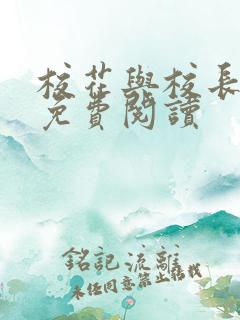 校花與校長
免費閱讀
銘記流離
未任同意禁止搭我